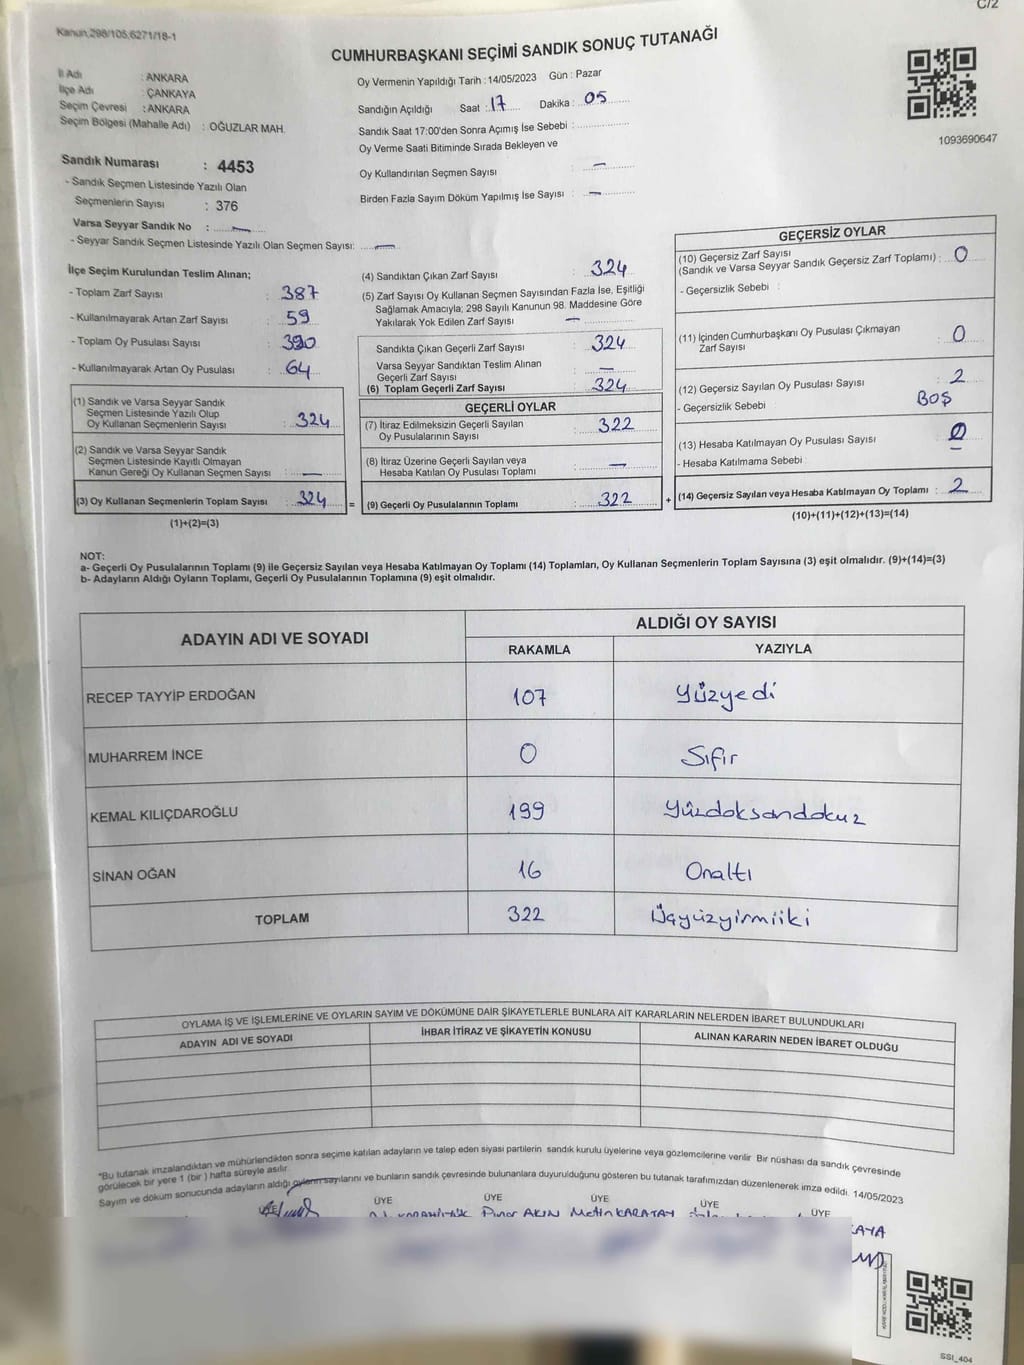 C/2
Kanun,298/105,6271/18-1
CUMHURBAŞKANI SEÇİMİ SANDIK SONUÇ TUTANAĞI
İl Adı : ANKARA
İlçe Adı : ÇANKAYA
Seçim Çevresi : ANKARA
Seçim Bölgesi (Mahalle Adı) : OĞUZLAR MAH.
Sandık Numarası : 4453
- Sandık Seçmen Listesinde Yazılı Olan
Seçmenlerin Sayısı : 376
Varsa Seyyar Sandık No : —
- Seyyar Sandık Seçmen Listesinde Yazılı Olan Seçmen Sayısı: —
Oy Vermenin Yapıldığı Tarih : 14/05/2023 Gün : Pazar
Sandığın Açıldığı Saat : 17 Dakika : 05
Sandık Saat 17:00'den Sonra Açımış İse Sebebi :
Oy Verme Saati Bitiminde Sırada Bekleyen ve
Oy Kullandırılan Seçmen Sayısı : —
Birden Fazla Sayım Döküm Yapılmış İse Sayısı : —
1093690647
İlçe Seçim Kurulundan Teslim Alınan;
- Toplam Zarf Sayısı : 387
- Kullanılmayarak Artan Zarf Sayısı : 59
- Toplam Oy Pusulası Sayısı : 390
- Kullanılmayarak Artan Oy Pusulası : 64
(1) Sandık ve Varsa Seyyar Sandık
Seçmen Listesinde Yazılı Olup
Oy Kullanan Seçmenlerin Sayısı : 324
(2) Sandık ve Varsa Seyyar Sandık
Seçmen Listesinde Kayıtlı Olmayan
Kanun Gereği Oy Kullanan Seçmen Sayısı : —
(3) Oy Kullanan Seçmenlerin Toplam Sayısı : 324 =
(1)+(2)=(3)
(4) Sandıktan Çıkan Zarf Sayısı : 324
(5) Zarf Sayısı Oy Kullanan Seçmen Sayısından Fazla İse, Eşitliği
Sağlamak Amacıyla; 298 Sayılı Kanunun 98. Maddesine Göre
Yakılarak Yok Edilen Zarf Sayısı : —
Sandıkta Çıkan Geçerli Zarf Sayısı : 324
Varsa Seyyar Sandıktan Teslim Alınan
Geçerli Zarf Sayısı : —
(6) Toplam Geçerli Zarf Sayısı : 324
GEÇERLİ OYLAR
(7) İtiraz Edilmeksizin Geçerli Sayılan
Oy Pusulalarının Sayısı : 322
(8) İtiraz Üzerine Geçerli Sayılan veya
Hesaba Katılan Oy Pusulası Toplamı : —
(9) Geçerli Oy Pusulalarının Toplamı : 322 +
GEÇERSİZ OYLAR
(10) Geçersiz Zarf Sayısı
(Sandık ve Varsa Seyyar Sandık Geçersiz Zarf Toplamı) : 0
- Geçersizlik Sebebi :
(11) İçinden Cumhurbaşkanı Oy Pusulası Çıkmayan
Zarf Sayısı : 0
(12) Geçersiz Sayılan Oy Pusulası Sayısı : 2
- Geçersizlik Sebebi : BOŞ
(13) Hesaba Katılmayan Oy Pusulası Sayısı : 0
- Hesaba Katılmama Sebebi : —
(14) Geçersiz Sayılan veya Hesaba Katılmayan Oy Toplamı : 2
(10)+(11)+(12)+(13)=(14)
NOT:
a- Geçerli Oy Pusulalarının Toplamı (9) ile Geçersiz Sayılan veya Hesaba Katılmayan Oy Toplamı (14) Toplamları, Oy Kullanan Seçmenlerin Toplam Sayısına (3) eşit olmalıdır. (9)+(14)=(3)
b- Adayların Aldığı Oyların Toplamı, Geçerli Oy Pusulalarının Toplamına (9) eşit olmalıdır.
ADAYIN ADI VE SOYADI ALDIĞI OY SAYISI
RAKAMLA YAZIYLA
RECEP TAYYİP ERDOĞAN 107 Yüzyedi
MUHARREM İNCE 0 Sıfır
KEMAL KILIÇDAROĞLU 199 Yüzdoksandokuz
SİNAN OĞAN 16 Onaltı
TOPLAM 322 Üçyüzyirmiiki
OYLAMA İŞ VE İŞLEMLERİNE VE OYLARIN SAYIM VE DÖKÜMÜNE DAİR ŞİKAYETLERLE BUNLARA AİT KARARLARIN NELERDEN İBARET BULUNDUKLARI
ADAYIN ADI VE SOYADI İHBAR İTİRAZ VE ŞİKAYETİN KONUSU ALINAN KARARIN NEDEN İBARET OLDUĞU
*Bu tutanak imzalandıktan ve mühürlendikten sonra seçime katılan adayların ve talep eden siyasi partilerin sandık kurulu üyelerine veya gözlemcilerine verilir Bir nüshası da sandık çevresinde
görülecek bir yere 1 (bir ) hafta süreyle asılır.
Sayım ve döküm sonucunda adayların aldığı oyların sayılarını ve bunların sandık çevresinde bulunanlara duyurulduğunu gösteren bu tutanak tarafımızdan düzenlenerek imza edildi. 14/05/2023
ÜYE ÜYE ÜYE ÜYE ÜYE
Pınar AKIN Metin KARATAY
SSI_404